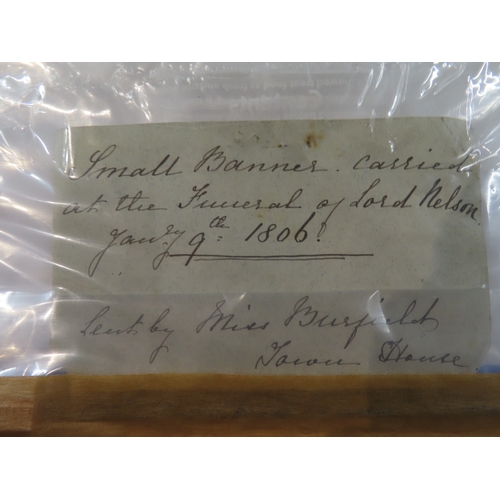 Small Banner. carried
at the Funeral of Lord Nelson.
Jany 9th 1806.
Lent by Miss Burfield
Town House